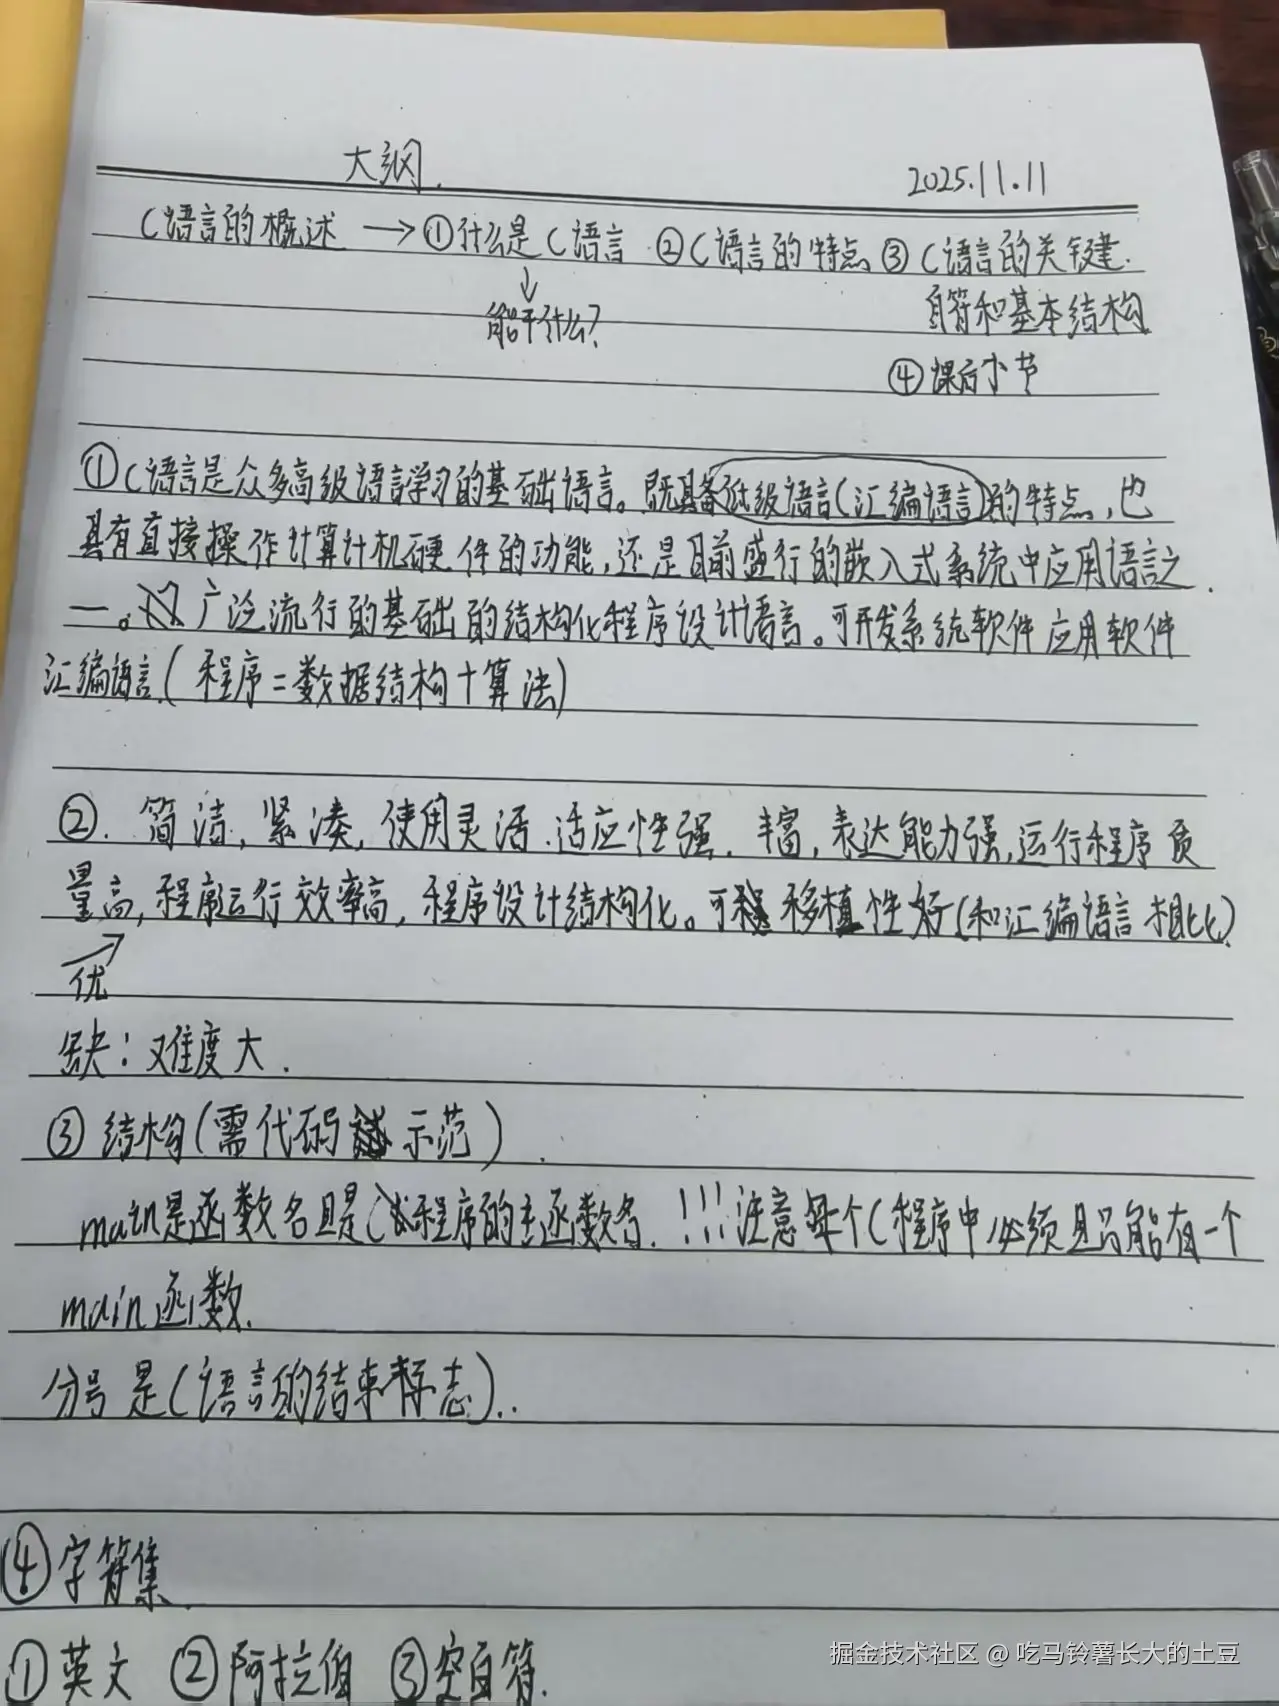 大纲.
2025.11.11
C语言的概述 → ①什么是C语言 ②C语言的特点 ③C语言的关键
↓
能干什么?
自符和基本结构
④课后小节
①C语言是众多高级语言学习的基础语言。既具备低级语言(汇编语言)的特点,也
具有直接操作计算计机硬件的功能,还是目前盛行的嵌入式系统中应用语言之
一。广泛流行的基础的结构化程序设计语言。可开发系统软件应用软件
汇编语言(程序=数据结构+算法)
②. 简洁,紧凑,使用灵活.适应性强. 丰富,表达能力强,运行程序质
量高,程序运行效率高,程序设计结构化。可移植性好(和汇编语言相比)
优
缺:难度大.
③结构(需代码示范)
main是函数名且是C程序的主函数名. !!!注意每个C程序中必须且只能有一个
main函数.
分号是C语言的结束标志)..
④字符集
①英文 ②阿拉伯 ③空白符.
掘金技术社区 @ 吃马铃薯长大的土豆